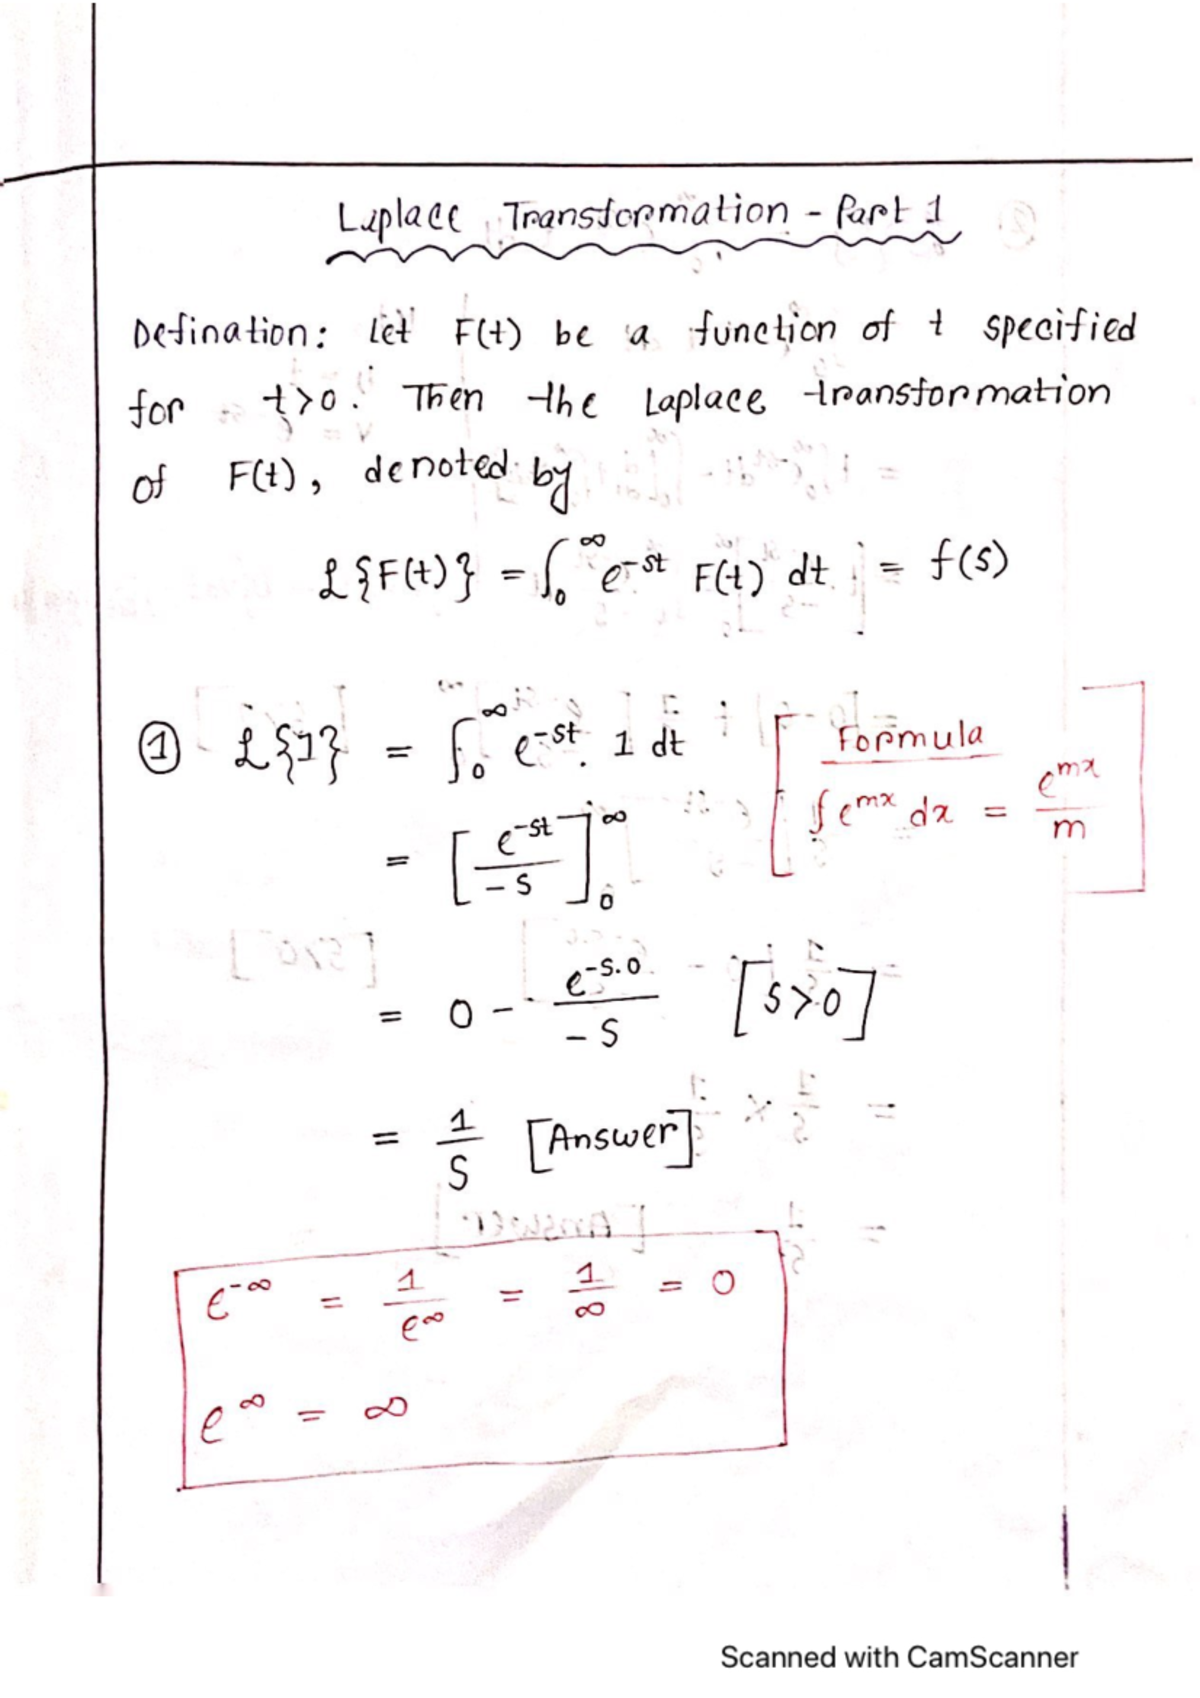 Laplace Transformation - Part 1
Defination: Let F(t) be a function of t specified
for t>0. Then the Laplace transformation
of F(t), denoted by
ℒ{F(t)} = ∫₀^∞ e^-st F(t) dt = f(s)
① ℒ{1} = ∫₀^∞ e^-st. 1 dt
Formula
∫ e^mx dx = e^mx / m
= [e^-st / -s]₀^∞
= 0 - e^-s.0 / -s [s>0]
= 1/s [Answer]
e^-∞ = 1/e^∞ = 1/∞ = 0
e^∞ = ∞
Scanned with CamScanner